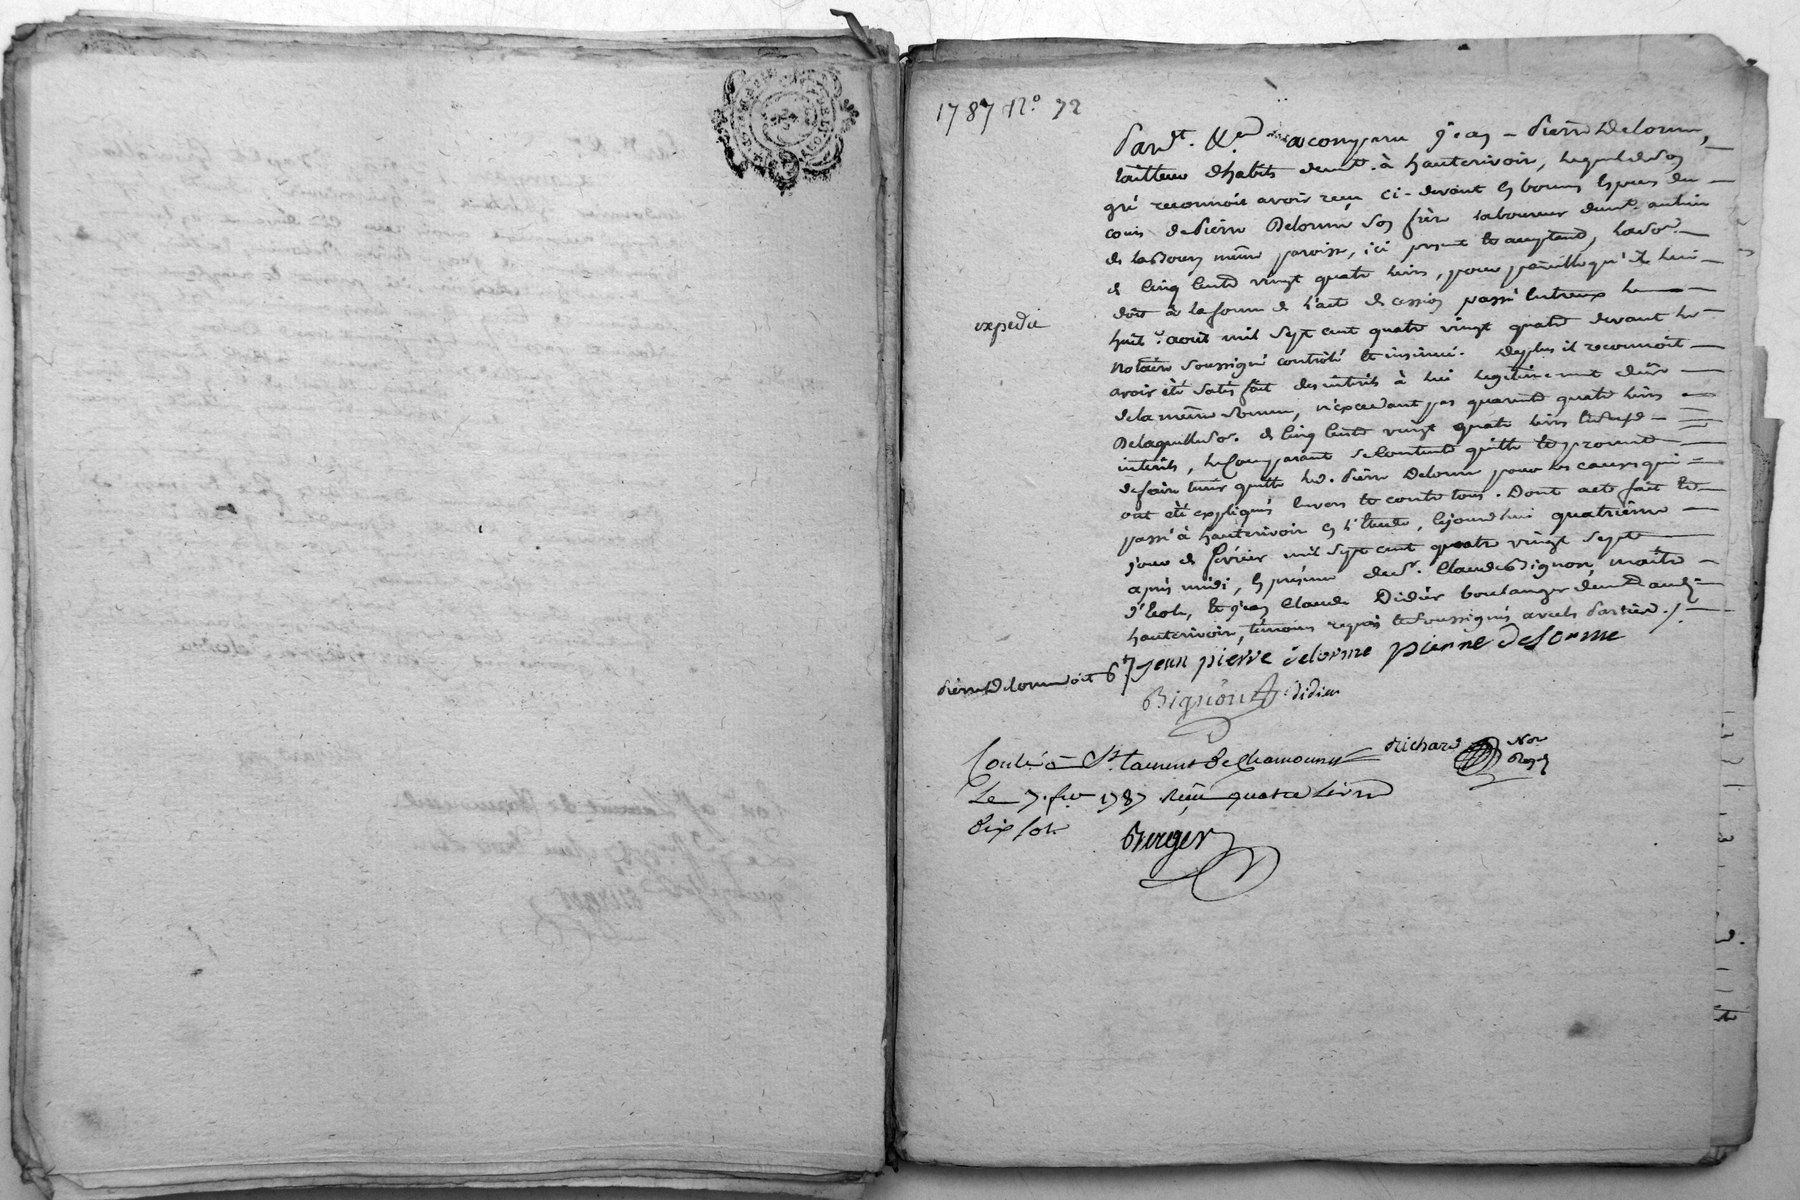 1787 N.o 72
Pard.t &.a a comparu Jean-Pierre Delorme,
tailleur d'habits demt. à hauterivoir, lequel de son
gré reconnoit avoir recu ci-devant en bonnes Espèces du
cours de Pierre Delorme son frère laboureur demt. au lieu
de même paroisse, ici present et acceptant, la so.
de Cinq Cents vingt quatre livres, pour pareille qu'il lui
doit à la forme de l'acte de cession passé entreux le
huit.e août mil sept cent quatre vingt quatre devant le
expedié
Notaire soussigné contrôlé et insinué. Deplus il reconnoit
avoir été satisfait des interêts à lui legitimement dûs
de la même somme, n'excedant pas quarante quatre livres
De laquelle so. de Cinq Cents vingt quatre livres et desd.
interêts, le Comparant se contente quitte et promet
de faire tenir quitte led. Pierre Delorme pour les causes qui
ont été expliqués envers et contre tous. Dont acte fait et
passé à hauterivoir en l'Etude, cejourd'hui quatrième
jour de février mil sept cent quatre vingt sept
après midi, en présence de S.r Claude Bignon, maître
d'Ecole, et Jean Claude Didier boulanger demt. aud.
hauterivoir, témoins requis et soussignés avec les Parties ./.
Pierre Delorme doit 6 jean pierre delorme pierre delorme
Bignon didier
Richard Nor. Roy.l
Contr. à St. Laurent de Chamousset
Le 7. fev. 1787 Reçu quatre Livres
dix sols
Berger